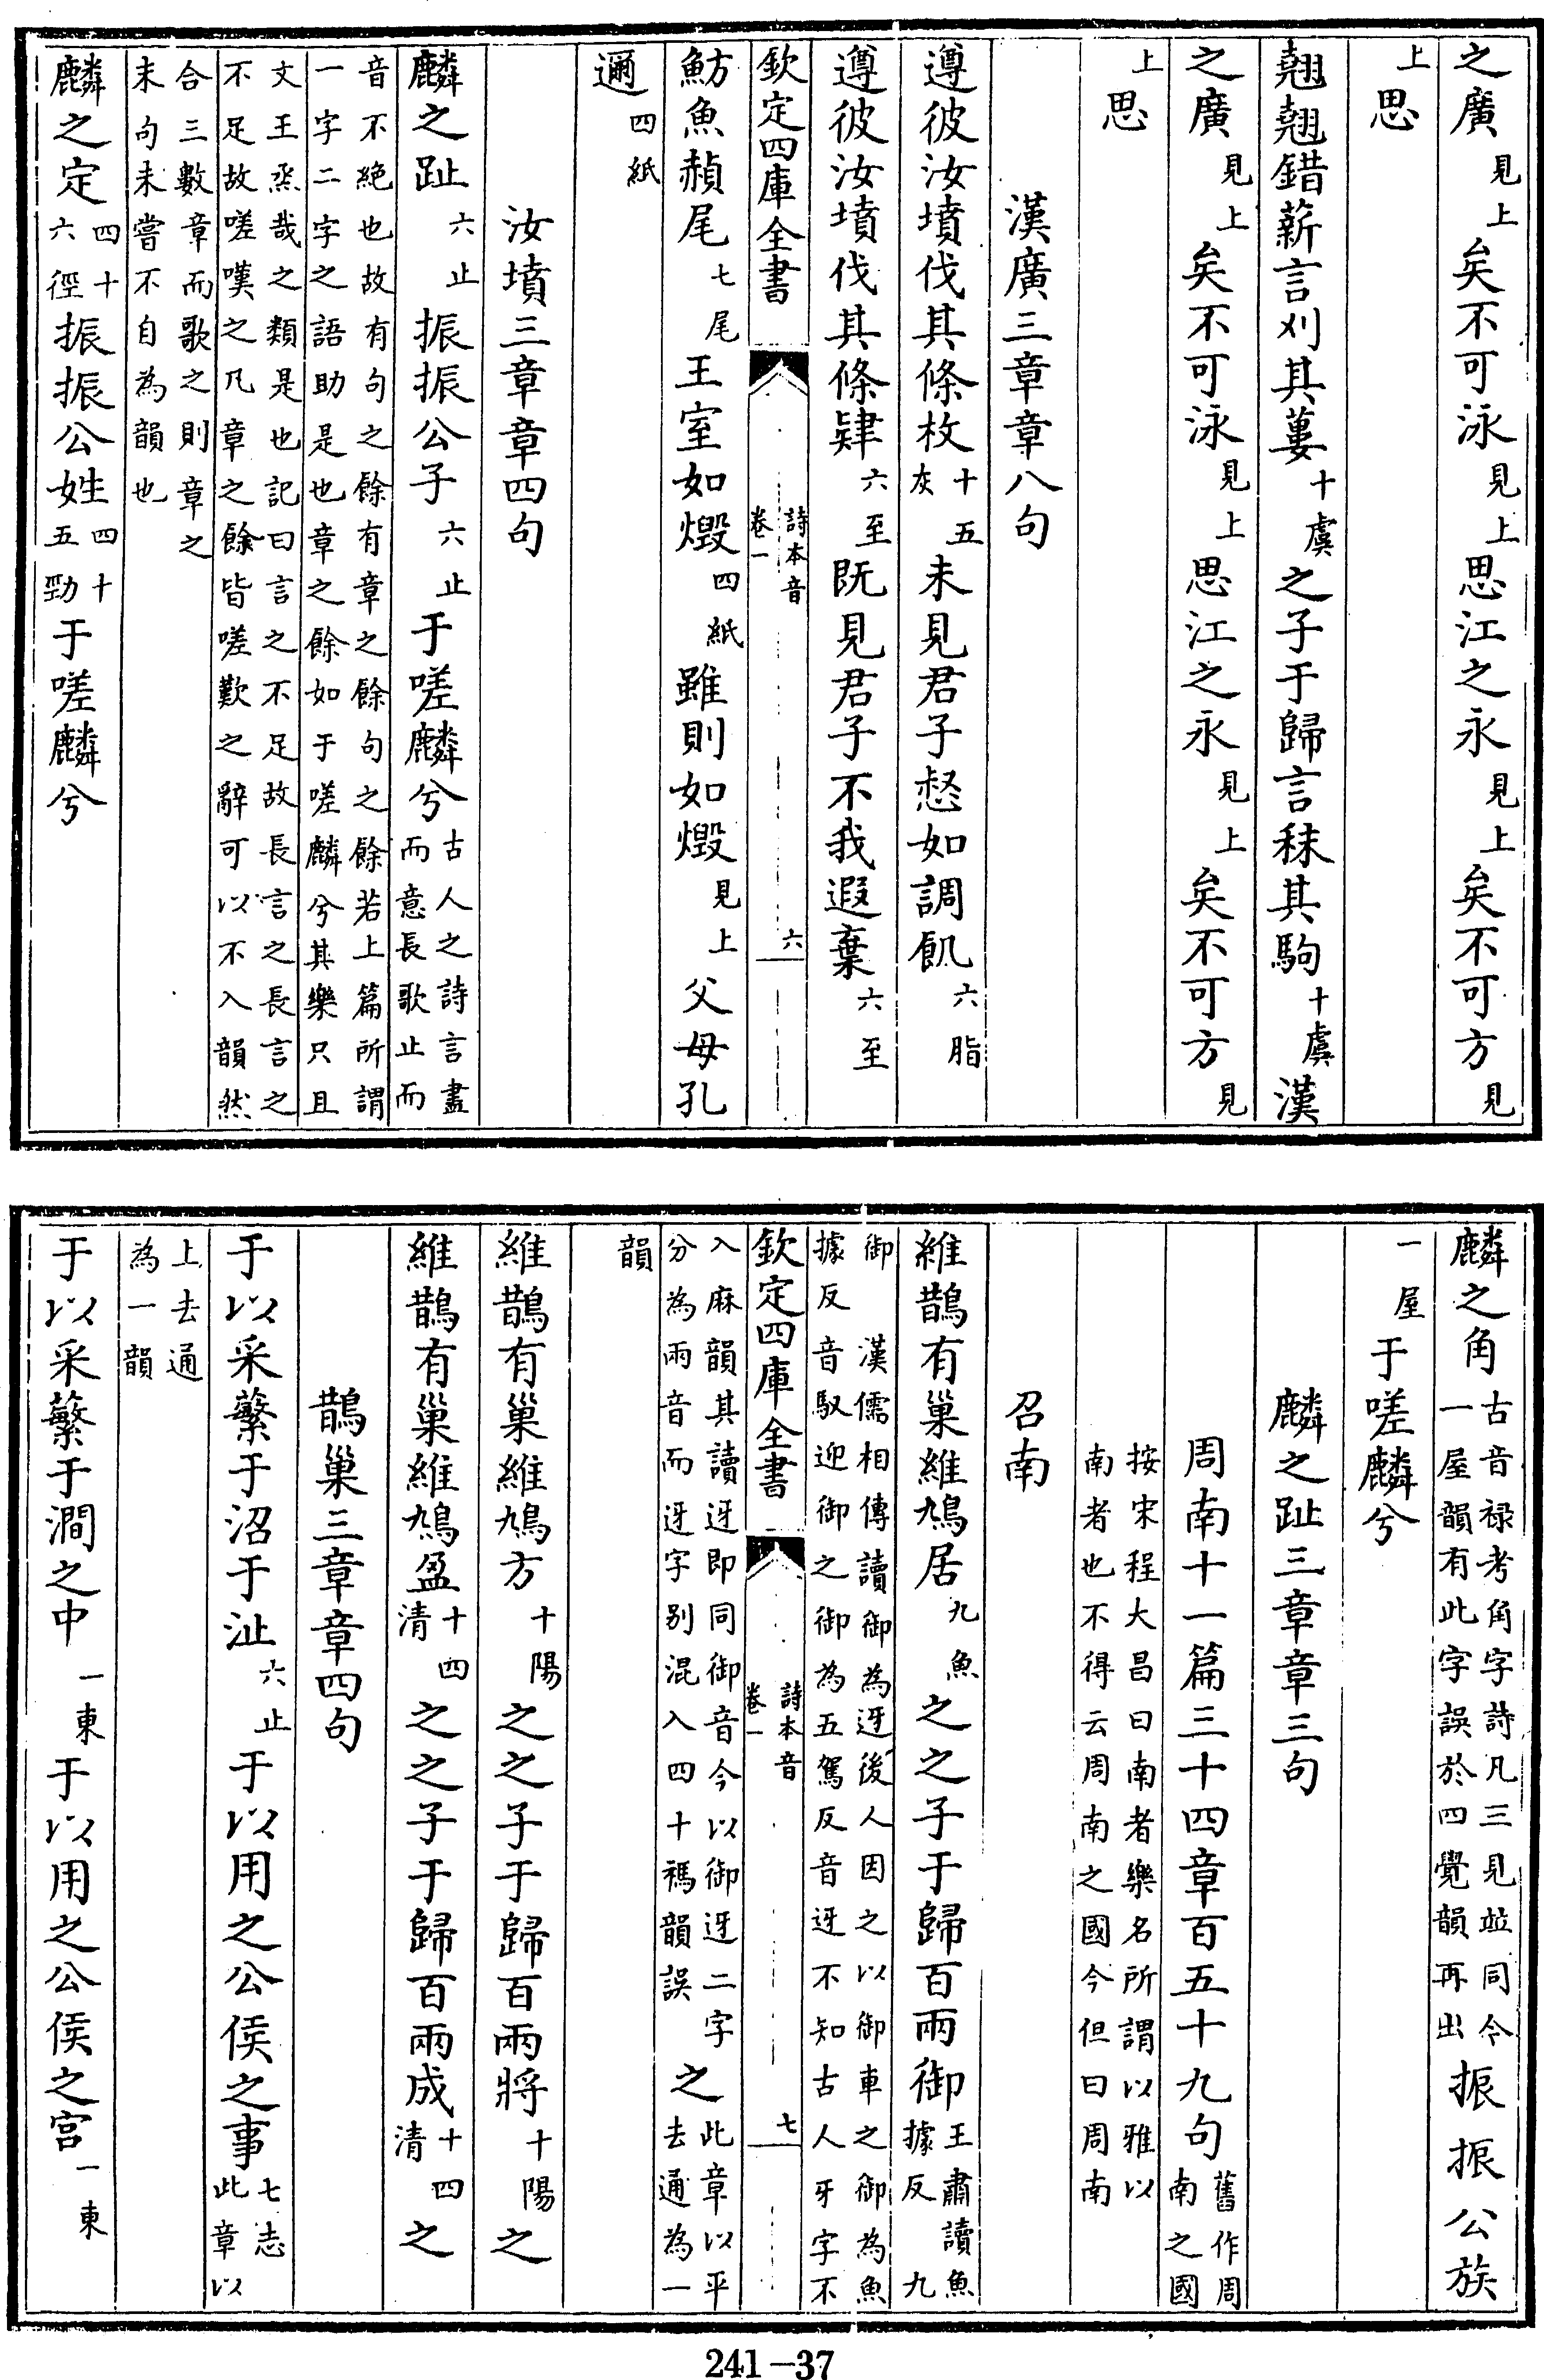 之廣見上矣不可泳見上思江之永見上矣不可方見
上思
翹翹錯薪言刈其蔞十虞之子于歸言秣其駒十虞漢
之廣見上矣不可泳見上思江之永見上矣不可方見
上思
漢廣三章章八句
遵彼汝墳伐其條枚十五灰未見君子惄如調飢六脂
遵彼汝墳伐其條肄六至既見君子不我遐棄六至
欽定四庫全書 詩本音 卷一 六
魴魚赬尾七尾王室如燬四紙雖則如燬見上父母孔
邇四紙
汝墳三章章四句
麟之趾六止振振公子六止于嗟麟兮古人之詩言盡而意長歌止而
音不絶也故有句之餘有章之餘句之餘若上篇所謂
一字二字之語助是也章之餘如于嗟麟兮其樂只且
文王烝哉之類是也記曰言之不足故長言之長言之
不足故嗟嘆之凡章之餘皆嗟歎之辭可以不入韻然
合三數章而歌之則章之
末句未嘗不自為韻也
麟之定四十六徑振振公姓四十五勁于嗟麟兮
麟之角古音禄考角字詩凡三見並同今一屋韻有此字誤於四覺韻再出振振公族
一屋于嗟麟兮
麟之趾三章章三句
周南十一篇三十四章百五十九句舊作周南之國
按宋程大昌曰南者樂名所謂以雅以
南者也不得云周南之國今但曰周南
召南
維鵲有巢維鳩居九魚之子于歸百兩御王肅讀魚據反九
御漢儒相傳讀御為迓後人因之以御車之御為魚
據反音馭迎御之御為五駕反音迓不知古人牙字不
欽定四庫全書 詩本音 卷一 七
入麻韻其讀迓即同御音今以御迓二字
分為兩音而迓字别混入四十禡韻誤之此章以平去通為一
韻
維鵲有巢維鳩方十陽之之子于歸百兩將十陽之
維鵲有巢維鳩盈十四清之之子于歸百兩成十四清之
鵲巢三章章四句
于以采蘩于沼于沚六止于以用之公侯之事七志此章以
上去通
為一韻
于以采蘩于澗之中一東于以用之公侯之宫一東
241—37